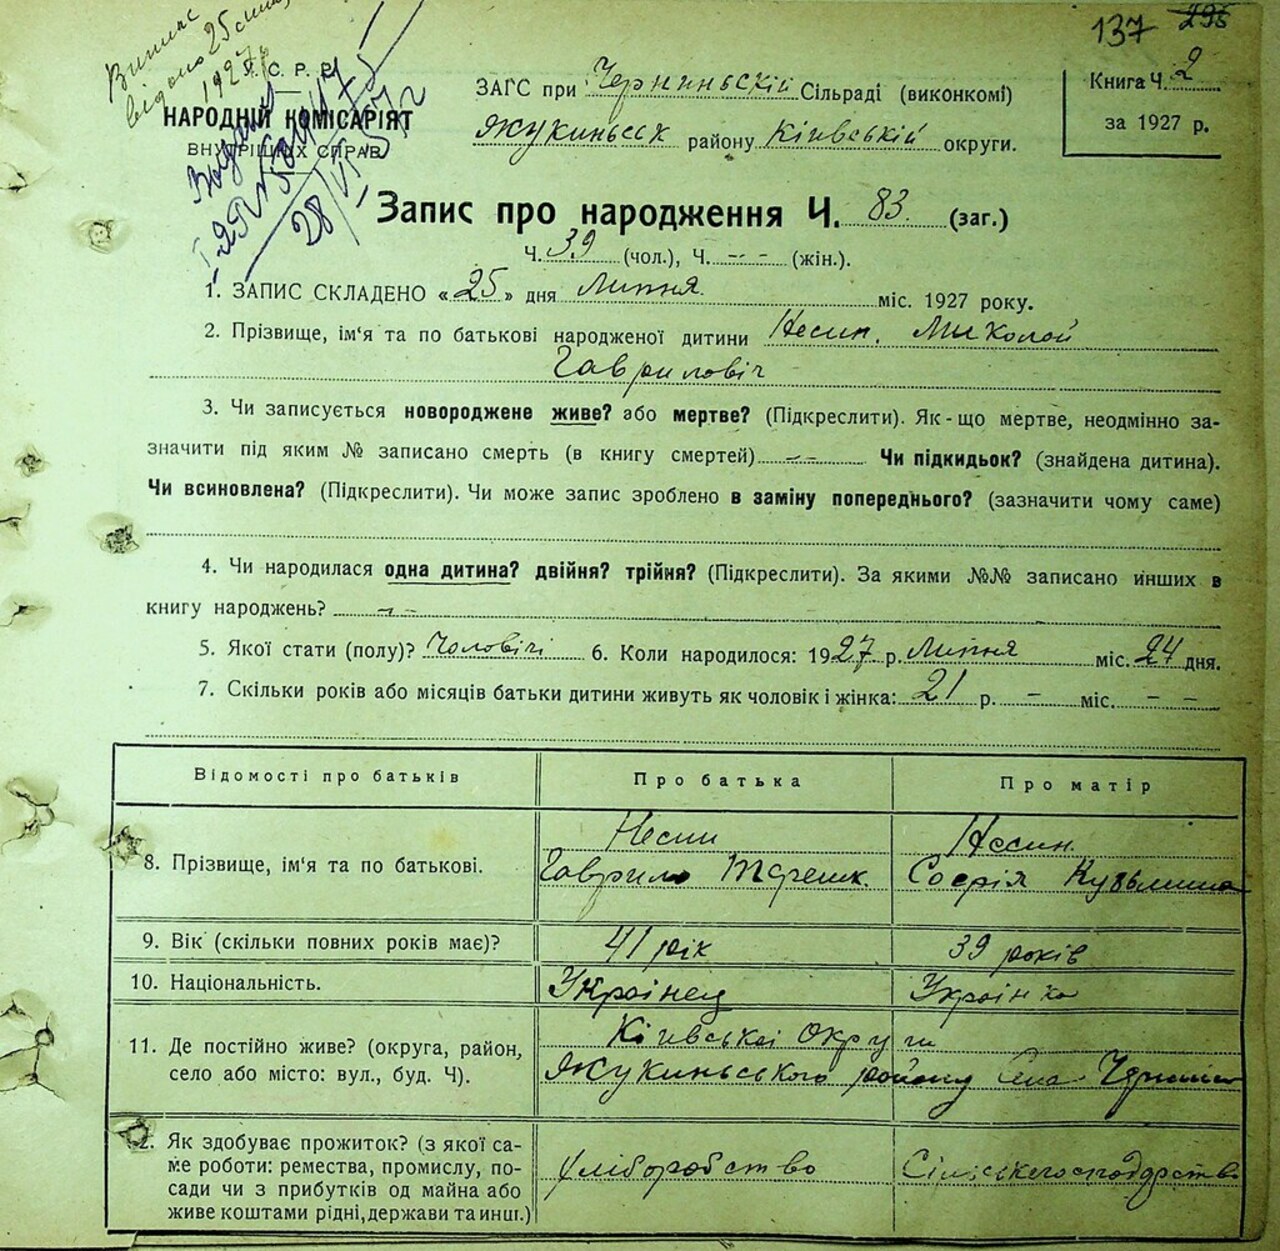 137 295
Випис
видано 25 
1927 р
У. С. Р. Р.
НАРОДНІЙ КОМІСАРІЯТ
ВНУТРІШНІХ СПРАВ
28/VI
ЗАГС при Черниньскій Сільраді (виконкомі)
Жукиньск району Кіівській округи.
Книга Ч. 2
за 1927 р.
Запис про народження Ч. 83. (заг.)
Ч. 39 (чол.), Ч. - - (жін.).
1. ЗАПИС СКЛАДЕНО «25» дня Липня міс. 1927 року.
2. Прізвище, ім'я та по батькові народженої дитини Несин. Миколой
Гавриловіч
3. Чи записується новороджене живе? або мертве? (Підкреслити). Як-що мертве, неодмінно за-
значити під яким № записано смерть (в книгу смертей) - - Чи підкидьок? (знайдена дитина).
Чи всиновлена? (Підкреслити). Чи може запис зроблено в заміну попереднього? (зазначити чому саме)
4. Чи народилася одна дитина? двійня? трійня? (Підкреслити). За якими №№ записано инших в
книгу народжень? - -
5. Якої стати (полу)? Чоловічі 6. Коли народилося: 1927 р. Липня міс. 24 дня.
7. Скільки років або місяців батьки дитини живуть як чоловік і жінка: 21 р. - міс. - -
Відомості про батьків Про батька Про матір
8. Прізвище, ім'я та по батькові.
Несин
Гаврило
Несин.
Софія Кузьмина
9. Вік (скільки повних років має)? 41 рік 39 років
10. Національність. Украінец Украінка
11. Де постійно живе? (округа, район,
село або місто: вул., буд. Ч).
Кіівськоі Округи
Жукиньського району Села
12. Як здобуває прожиток? (з якої са-
ме роботи: ремества, промислу, по-
сади чи з прибутків од майна або
живе коштами рідні, держави та инш.)
хліборобство